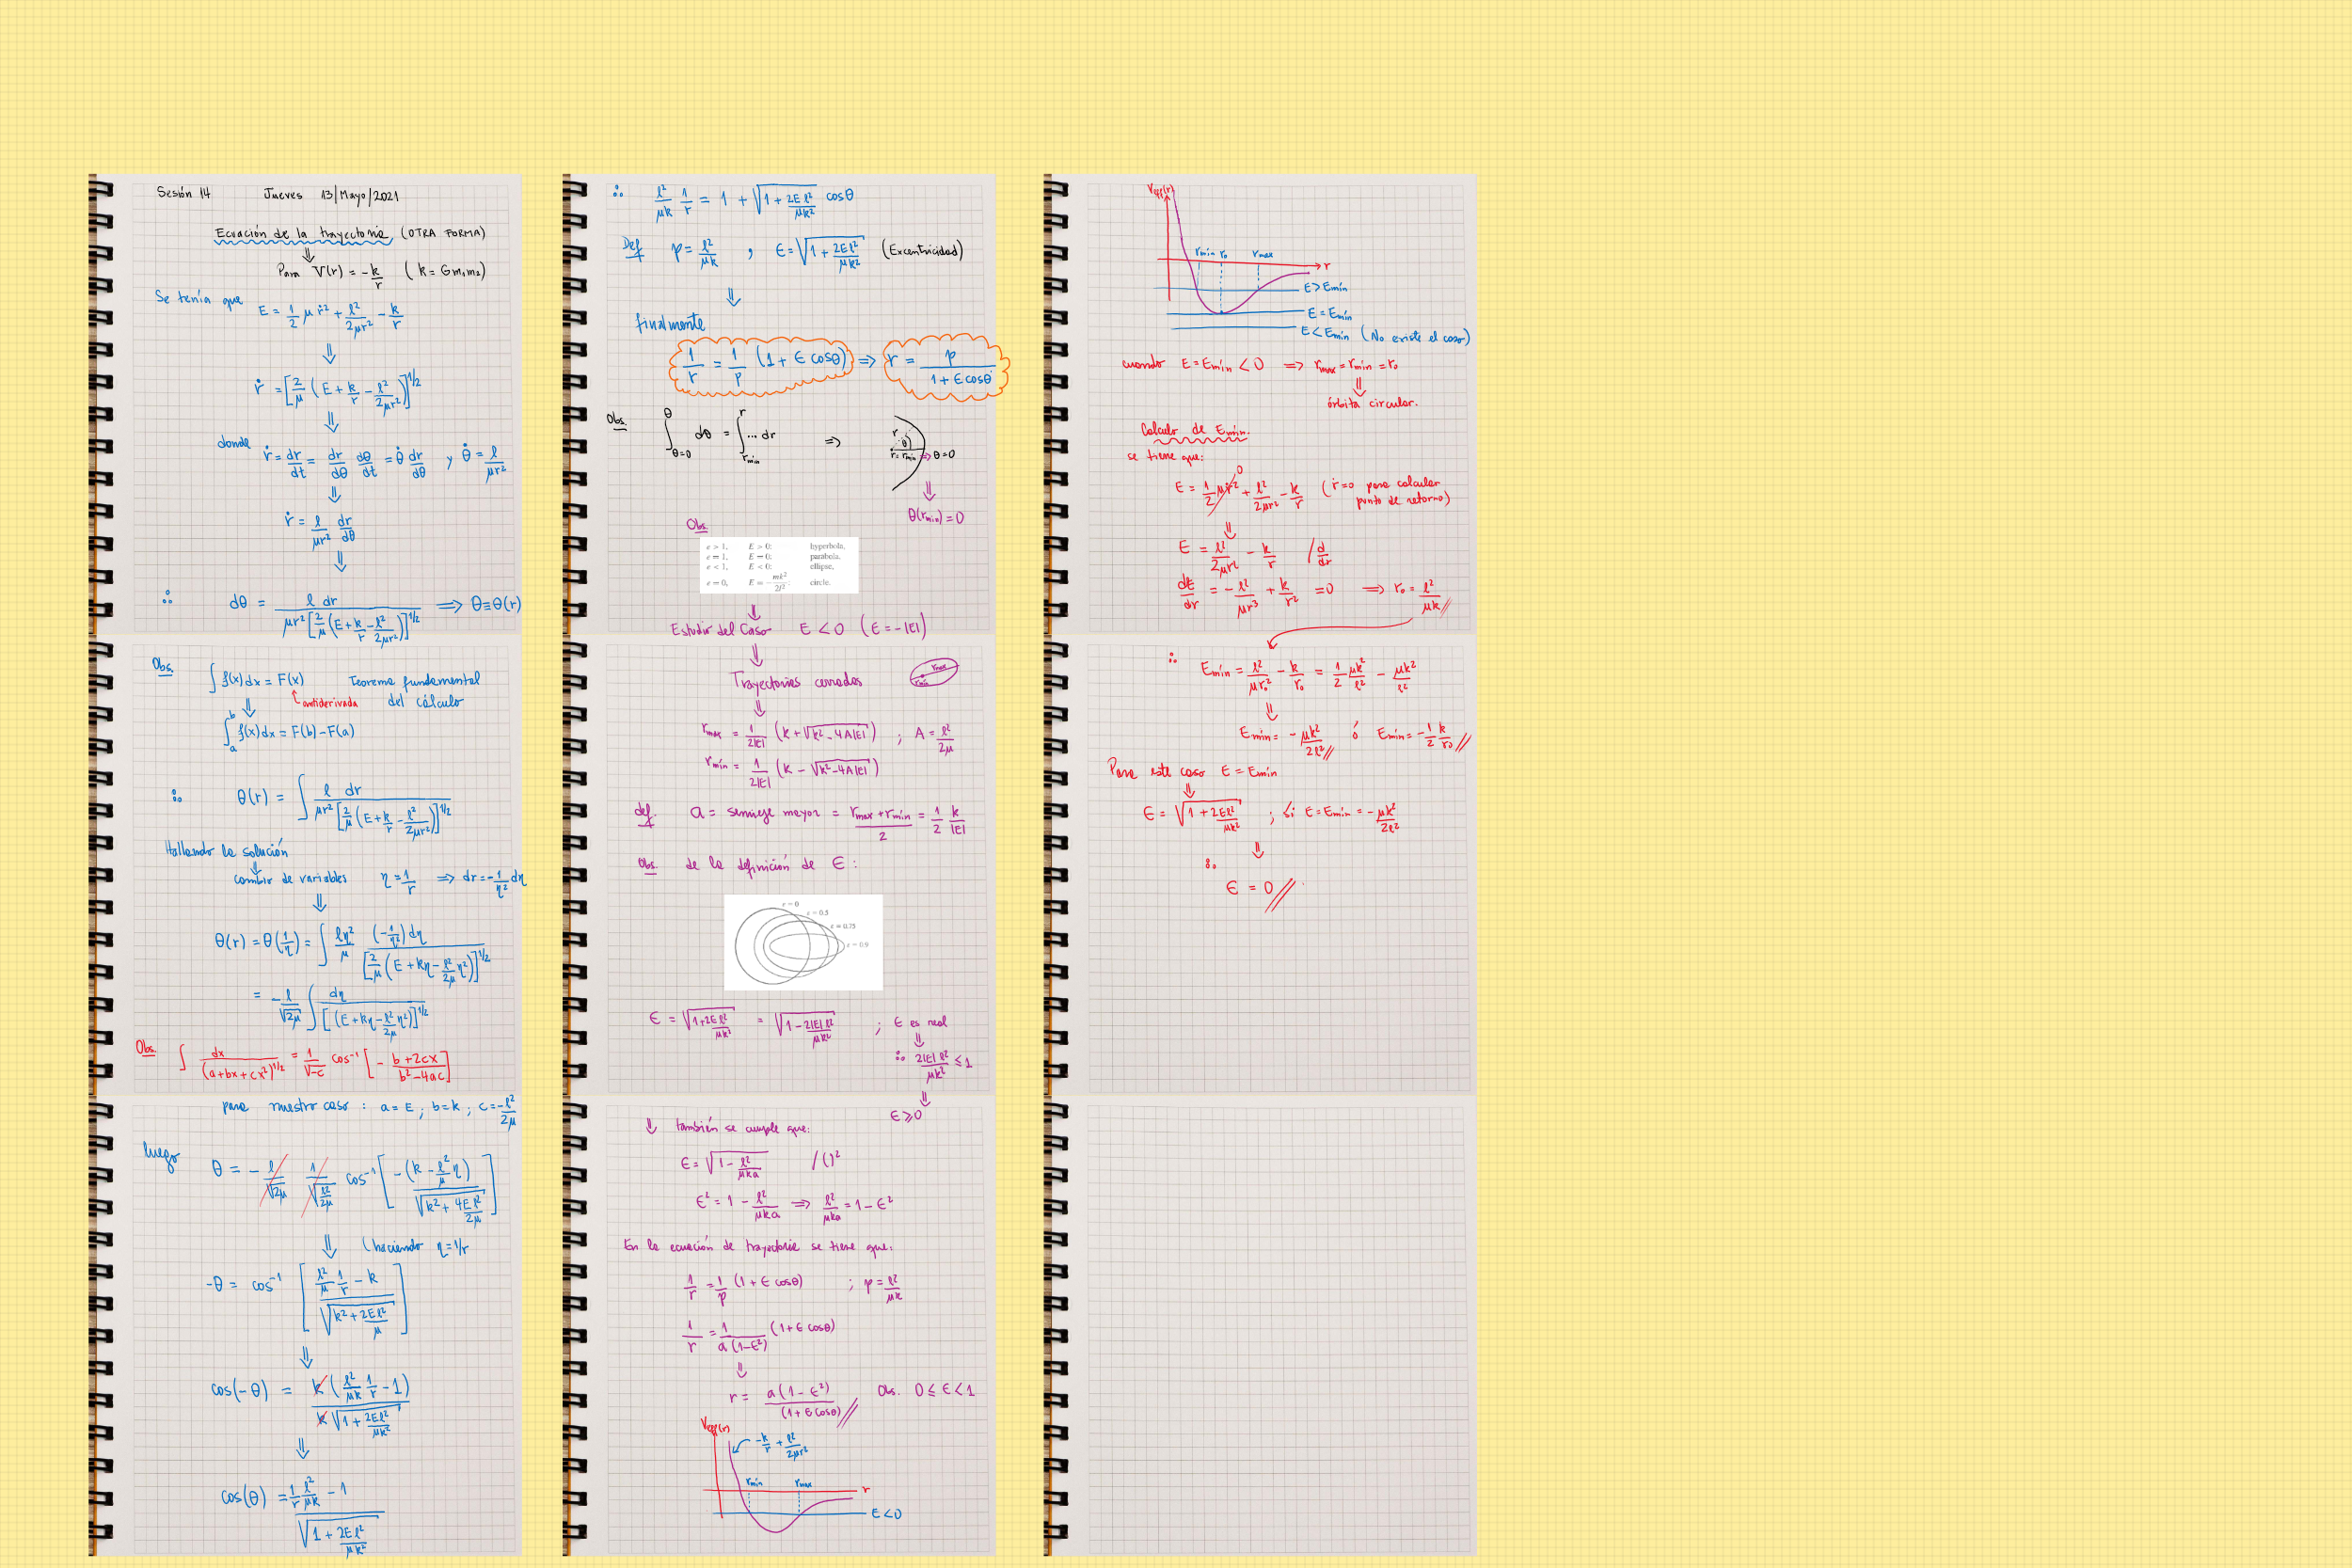 Sesión 14 Jueves 13/Mayo/2021
Ecuación de la trayectoria (OTRA FORMA)
⇓
Para V(r) = -k/r (k = Gm₁m₂)
Se tenía que
E = 1/2 μ ṙ² + l²/2μr² - k/r
⇓
ṙ = [2/μ (E + k/r - l²/2μr²)]^1/2
⇓
donde
ṙ = dr/dt = dr/dθ dθ/dt = θ̇ dr/dθ y θ̇ = l/μr²
⇓
ṙ = l/μr² dr/dθ
⇓
∴ dθ = l dr / μr² [2/μ (E + k/r - l²/2μr²)]^1/2 ⟹ θ ≡ θ(r)
Obs. ∫ f(x)dx = F(x) Teorema fundamental
antiderivada del cálculo
⇓
∫_a^b f(x)dx = F(b) - F(a)
∴ θ(r) = ∫ l dr / μr² [2/μ (E + k/r - l²/2μr²)]^1/2
Hallando la solución
↓
cambio de variables η = 1/r ⟹ dr = -1/η² dη
⇓
θ(r) = θ(1/η) = ∫ lη²/μ (-1/η²) dη / [2/μ (E + kη - l²/2μ η²)]^1/2
= -l/√2μ ∫ dη / [(E + kη - l²/2μ η²)]^1/2
Obs. ∫ dx/(a+bx+cx²)^1/2 = 1/√-c cos⁻¹ [- b+2cx / b²-4ac]
para nuestro caso : a = E ; b = k ; c = -l²/2μ
luego
θ = - l/√2μ 1/√l²/2μ cos⁻¹ [ -(k - l²/μ η) / √k² + 4El²/2μ ]
⇓ (haciendo η = 1/r
-θ = cos⁻¹ [ l²/μ 1/r - k / √k² + 2El²/μ ]
⇓
cos(-θ) = k (l²/μk 1/r - 1) / k √1 + 2El²/μk²
⇓
cos(θ) = 1/r l²/μk - 1 / √1 + 2El²/μk²
∴ l²/μk 1/r = 1 + √1 + 2El²/μk² cosθ
Def p = l²/μk , ϵ = √1 + 2El²/μk² (Excentricidad)
⇓
finalmente
1/r = 1/p (1 + ϵ cosθ) ⟹ r = p / 1 + ϵ cosθ
Obs. ∫_θ=0^θ dθ = ∫_rmin^r ... dr ⟹ r θ r = rmin ⟹ θ = 0
⇓
θ(rmin) = 0
Obs.
ε > 1, E > 0: hyperbola,
ε = 1, E = 0: parabola,
ε < 1, E < 0: ellipse,
ε = 0, E = -mk²/2l² : circle.
⇓
Estudio del Caso E < 0 (E = -|E|)
⇓
Trayectorias cerradas rmax rmin
⇓
rmax = 1/2|E| (k + √k² - 4A|E|) ; A = l²/2μ
rmín = 1/2|E| (k - √k² - 4A|E|)
def. a = semieje mayor = rmax + rmín / 2 = 1/2 k/|E|
Obs. de la definición de ϵ :
ε = 0
ε = 0.5
ε = 0.75
ε = 0.9
ϵ = √1 + 2El²/μk² = √1 - 2|E|l²/μk² ; ϵ es real
⇓
∴ 2|E|l²/μk² ≤ 1
⇓
ϵ ⩾ 0
⇓ también se cumple que:
ϵ = √1 - l²/μka /( )²
ϵ² = 1 - l²/μka ⟹ l²/μka = 1 - ϵ²
En la ecuación de trayectoria se tiene que:
1/r = 1/p (1 + ϵ cosθ) ; p = l²/μk
1/r = 1/a(1-ϵ²) (1 + ϵ cosθ)
⇓
r = a(1 - ϵ²) / (1 + ϵ cosθ) // Obs. 0 ≤ ϵ < 1
Veff(r)
-k/r + l²/2μr²
rmín rmax r
E < 0
Veff(r)
rmín r₀ rmax r
E > Emín
E = Emín
E < Emín (No existe el caso)
cuando E = Emín < 0 ⟹ rmax = rmín = r₀
⇓
órbita circular.
Calculo de Emín.
se tiene que:
E = 1/2 μṙ² 0 + l²/2μr² - k/r (ṙ = 0 para calcular
punto de retorno)
⇓
E = l²/2μr² - k/r / d/dr
dE/dr = -l²/μr³ + k/r² = 0 ⟹ r₀ = l²/μk //
∴ Emín = l²/μr₀² - k/r₀ = 1/2 μk²/l² - μk²/l²
⇓
Emín = -μk²/2l² // ó Emín = -1/2 k/r₀ //
Para este caso E = Emín
⇓
ϵ = √1 + 2El²/μk² ; si E = Emín = -μk²/2l²
⇓
∴
ϵ = 0 //